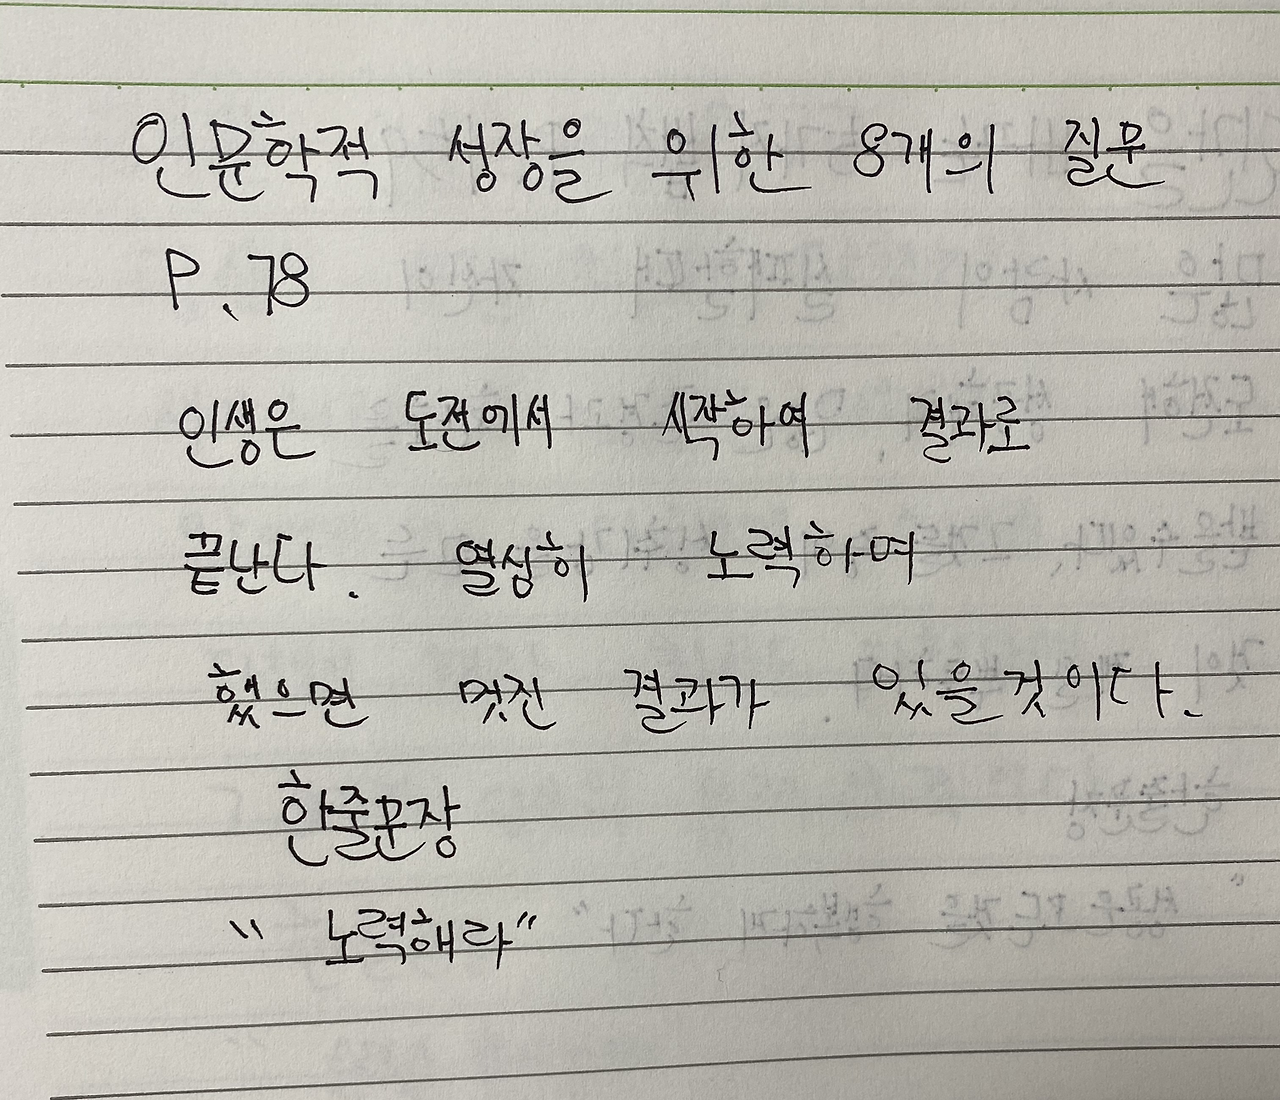 인문학적 성장을 위한 8개의 질문
P.78
인생은 도전에서 시작하여 결과로
끝난다. 열심히 노력하여
했으면 멋진 결과가 있을것이다.
한줄문장
" 노력해라"